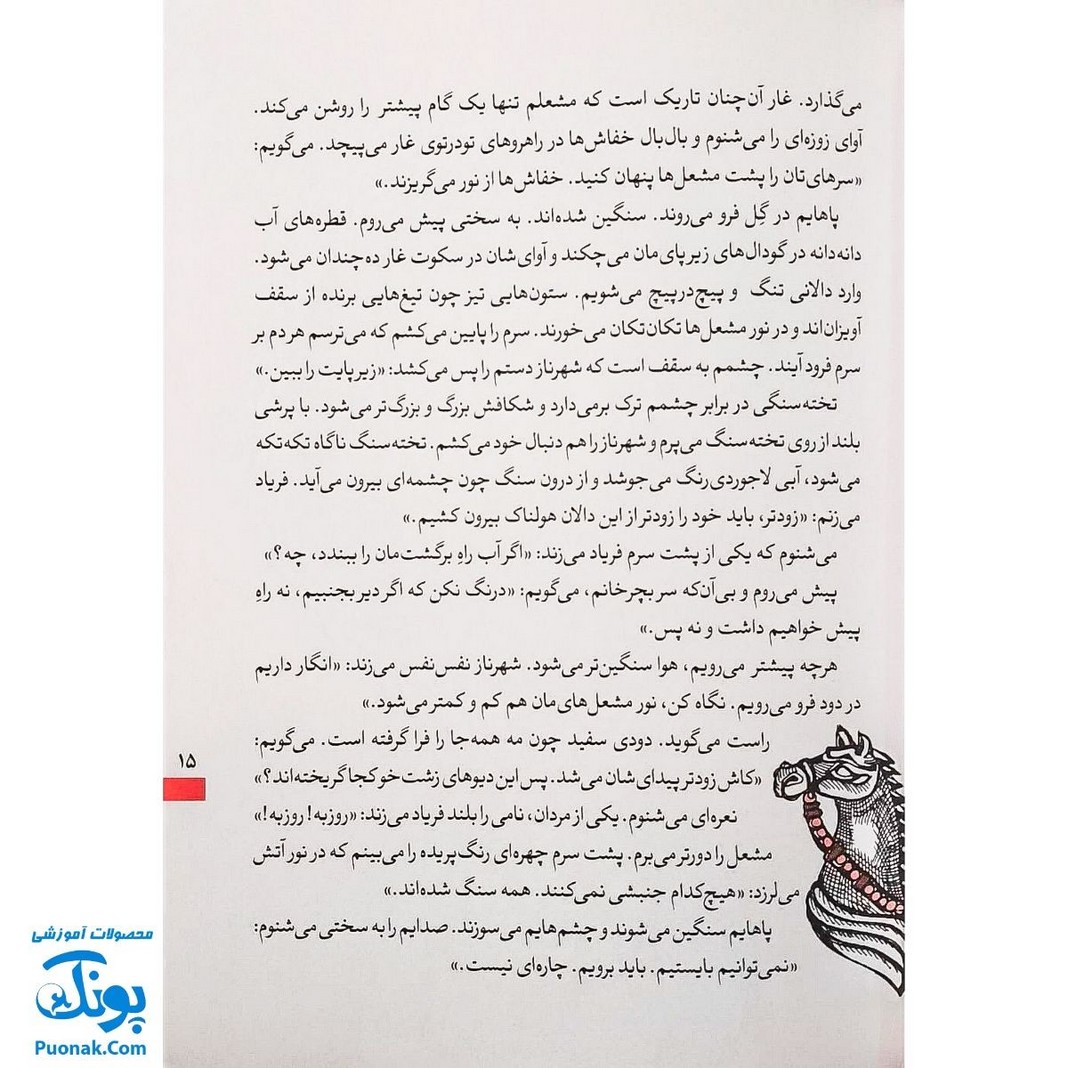 می‌گذارد. غار آن‌چنان تاریک است که مشعلم تنها یک گام پیشتر را روشن می‌کند.
آوای زوزه‌ای را می‌شنوم و بال‌بال خفاش‌ها در راهروهای تودرتوی غار می‌پیچد. می‌گویم:
«سرهای‌تان را پشت مشعل‌ها پنهان کنید. خفاش‌ها از نور می‌گریزند.»
پاهایم در گِل فرو می‌روند. سنگین شده‌اند. به سختی پیش می‌روم. قطره‌های آب
دانه‌دانه در گودال‌های زیر پای‌مان می‌چکند و آوای‌شان در سکوت غار ده‌چندان می‌شود.
وارد دالانی تنگ و پیچ‌درپیچ می‌شویم. ستون‌هایی تیز چون تیغ‌هایی برنده از سقف
آویزان‌اند و در نور مشعل‌ها تکان‌تکان می‌خورند. سرم را پایین می‌کشم که می‌ترسم هر دم بر
سرم فرود آیند. چشمم به سقف است که شهرناز دستم را پس می‌کشد: «زیر پایت را ببین.»
تخته‌سنگی در برابر چشمم ترک برمی‌دارد و شکافش بزرگ و بزرگ‌تر می‌شود. با پرشی
بلند از روی تخته‌سنگ می‌پرم و شهرناز را هم دنبال خود می‌کشم. تخته‌سنگ ناگاه تکه‌تکه
می‌شود، آبی لاجوردی‌رنگ می‌جوشد و از درون سنگ چون چشمه‌ای بیرون می‌آید. فریاد
می‌زنم: «زودتر، باید خود را زودتر از این دالان هولناک بیرون کشیم.»
می‌شنوم که یکی از پشت سرم فریاد می‌زند: «اگر آب راهِ برگشت‌مان را ببندد، چه؟»
پیش می‌روم و بی‌آن‌که سر بچرخانم، می‌گویم: «درنگ نکن که اگر دیر بجنبیم، نه راهِ
پیش خواهیم داشت و نه پس.»
هرچه پیشتر می‌رویم، هوا سنگین‌تر می‌شود. شهرناز نفس‌نفس می‌زند: «انگار داریم
در دود فرو می‌رویم. نگاه کن، نور مشعل‌های‌مان هم کم و کمتر می‌شود.»
راست می‌گوید. دودی سفید چون مه همه‌جا را فرا گرفته است. می‌گویم:
«کاش زودتر پیدای‌شان می‌شد. پس این دیوهای زشت‌خو کجا گریخته‌اند؟»
نعره‌ای می‌شنوم. یکی از مردان، نامی را بلند فریاد می‌زند: «روزبه! روزبه!»
مشعل را دورتر می‌برم. پشت سرم چهره‌ای رنگ‌پریده را می‌بینم که در نور آتش
می‌لرزد: «هیچ‌کدام جنبشی نمی‌کنند. همه سنگ شده‌اند.»
پاهایم سنگین می‌شوند و چشم‌هایم می‌سوزند. صدایم را به سختی می‌شنوم:
«نمی‌توانیم بایستیم. باید برویم. چاره‌ای نیست.»
۱۵
محصولات آموزشی
پونک
Puonak.Com